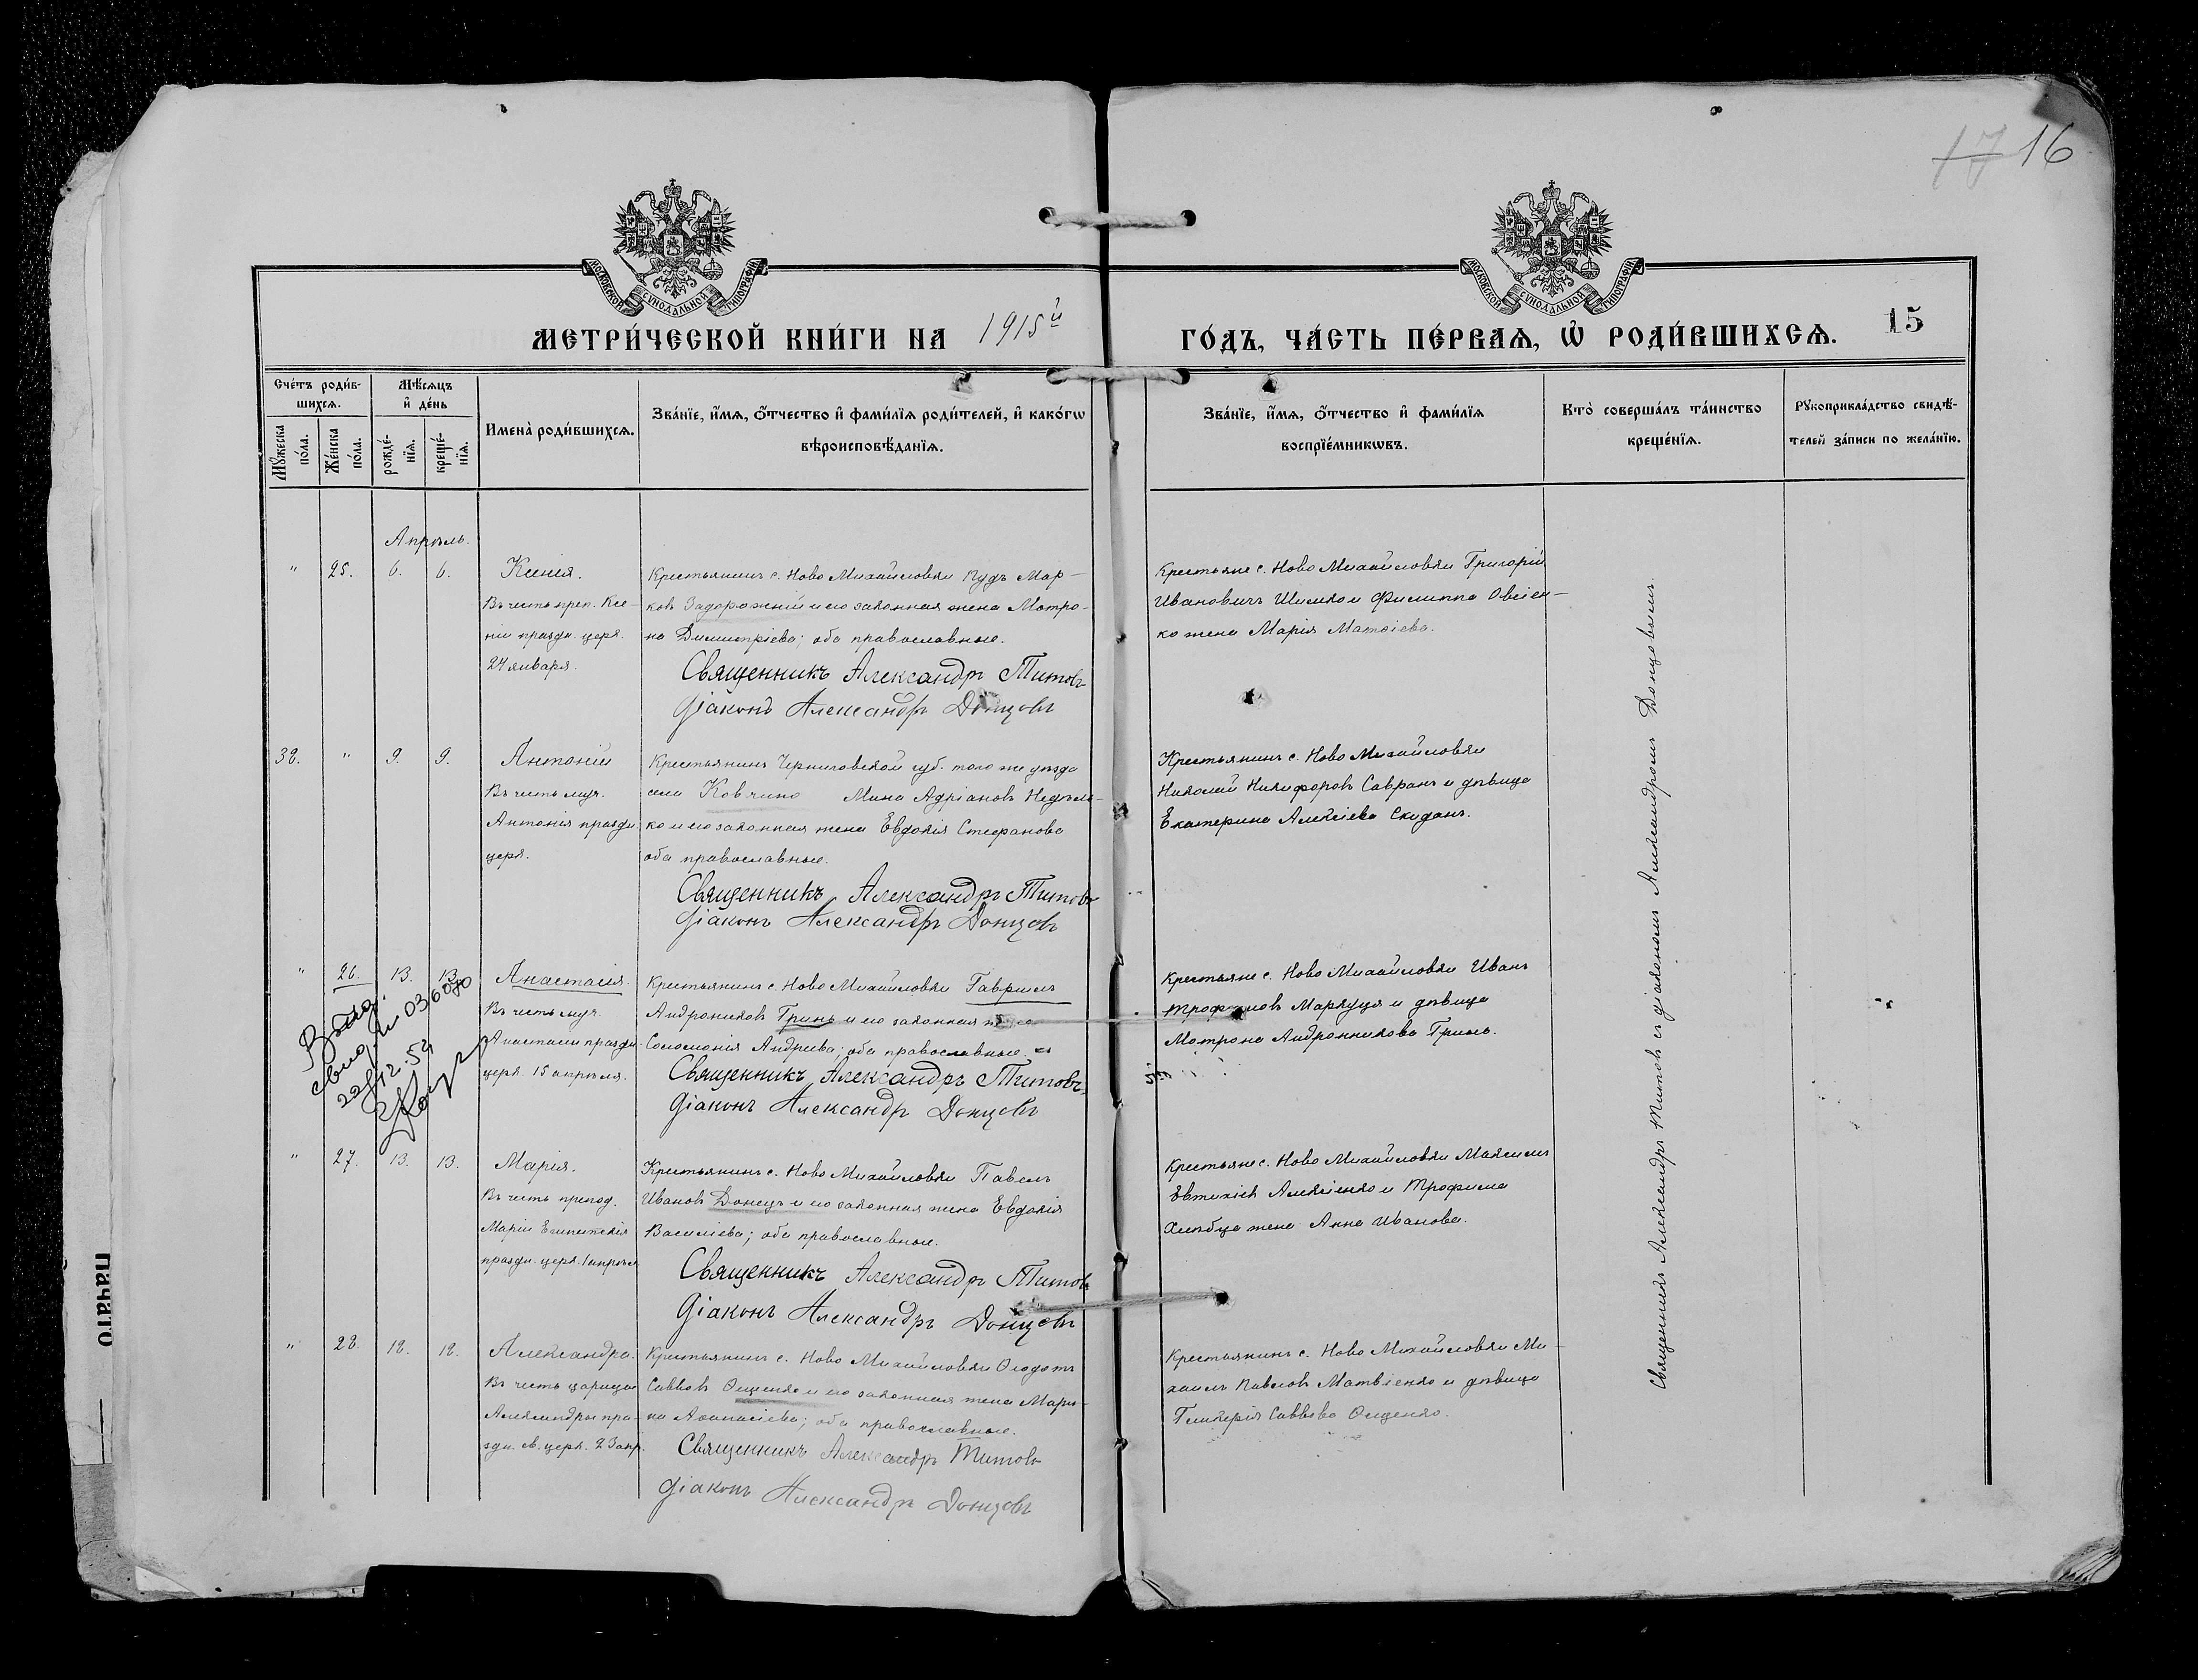 17 16
МОСКОВСКОЙ СѴНОДАЛЬНОЙ ТИПОГРАФІИ
МОСКОВСКОЙ СѴНОДАЛЬНОЙ ТИПОГРАФІИ
МЕТРИ́ЧЕСКОЙ КНИ́ГИ НА 1915й
ГО́ДЪ, ЧА́СТЬ ПЕ́РВАѦ, Ѽ РОДИ́ВШИХСѦ. 15
Сче́тъ роди́в-
шихсѧ.
Мѣ́сѧцъ
и҆ де́нь
Мꙋ́жеска
по́ла.
Же́нска
по́ла.
рожде́-
нїѧ.
креще́-
нїѧ.
Имена̀ роди́вшихсѧ.
Зва́нїе, и҆́мѧ, ѻ҆́тчество и҆ фами́лїѧ роди́телей, и҆ како́гѡ
вѣроисповѣ́данїѧ.
Зва́нїе, и҆́мѧ, ѻ҆́тчество и҆ фами́лїѧ
воспрїе́мникѡвъ.
Кто̀ соверша́лъ та́инство
креще́нїѧ.
Рꙋкоприкла́дство свидѣ́-
телей за́писи по жела́нїю.
Апрѣль.
" 25. 6. 6. Ксенія.
Въ честь преп. Ксе-
ніи праздн. церк.
24 января.
Крестьянинъ с. Ново Михайловки Кудъ Мар-
ковъ Задорожній и его законная жена Матро-
на Димитріева; оба православные.
Священникъ Александръ Титовъ
Діаконъ Александръ Донцовъ
Крестьяне с. Ново Михайловки Григорій
Ивановичъ Шимко и Филиппа Овсіен-
ко жена Марія Матвіева.
38. " 9. 9. Антоній
Въ честь муч.
Антонія праздн
церк.
Крестьянинъ Черниговской губ. того же уѣзда
села Ковчино Мина Адріановъ Недѣль-
ко и его законная жена Евдокія Стефанова
оба православные.
Священникъ Александръ Титовъ
Діаконъ Александръ Донцовъ
Крестьянинъ с. Ново Михайловки
Николай Никифоровъ Савранъ и дѣвица
Екатерина Алексіева Скиданъ.
" 26. 13. 13. Анастасія.
Въ честь муч.
Анастасіи праздн.
церк. 15 апрѣля.
Крестьянинъ с. Ново Михайловки Гавріилъ
Андрониковъ Гринь и его законная жена
Соломонія Андреева; оба православные.
Священникъ Александръ Титовъ
Діаконъ Александръ Донцовъ
Крестьяне с. Ново Михайловки Иванъ
Трофимовъ Маркуця и дѣвица
Матрона Андронникова Гринь.
22/12.54
" 27. 13. 13. Марія.
Въ честь препод.
Маріи Египетскія
праздн. церк. 1 апрѣля
Крестьянинъ с. Ново Михайловки Павелъ
Ивановъ Донецъ и его законная жена Евдокія
Василіева; оба православные.
Священникъ Александръ Титовъ
Діаконъ Александръ Донцовъ
Крестьяне с. Ново Михайловки Максимъ
Евтихіевъ Алексіенко и Трофима
Хлѣбца жена Анна Иванова.
" 28. 18. 18. Александра.
Въ честь царицы
Александры пра-
здн. св. церк. 23 апр.
Крестьянинъ с. Ново Михайловки Ѳеодотъ
Савовъ Ощенко и его законная жена Мари-
на Аѳанасіева; оба православные.
Священникъ Александръ Титовъ
Діаконъ Александръ Донцовъ
Крестьянинъ с. Ново Михайловки Ми-
хаилъ Павловъ Матвіенко и дѣвица
Гликерія Саввова Ощенко.
Священникъ Александръ Титовъ съ діакономъ Александромъ Донцовымъ.
Начато